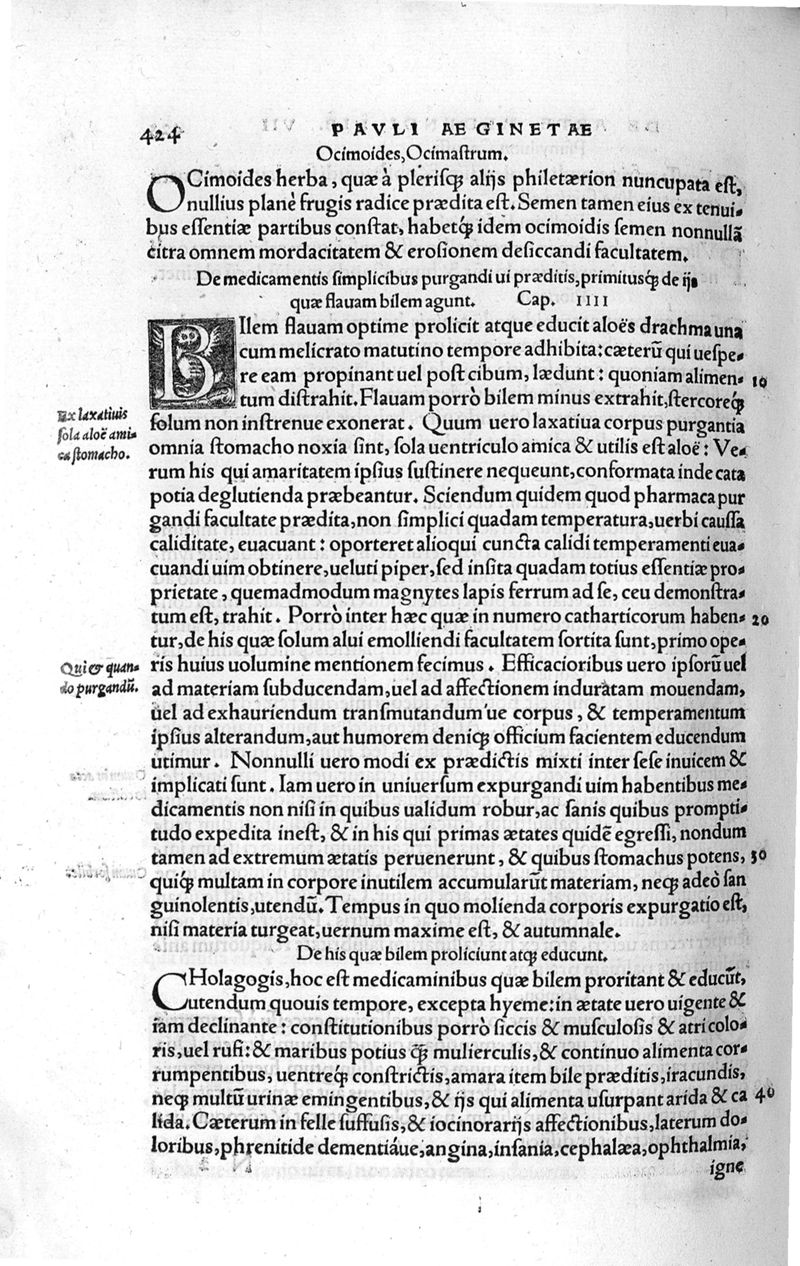 424 PAVLI AEGINETAE
Ocimoides, Ocimastrum.
OCimoides herba, quæ à plerisq; alijs philetærion nuncupata est,
nullius planè frugis radice prædita est. Semen tamen eius ex tenui-
bus essentiæ partibus constat, habetq; idem ocimoidis semen nonnullã
citra omnem mordacitatem & erosionem desiccandi facultatem.
De medicamentis simplicibus purgandi ui præditis, primitusq; de ijs
quæ flauam bilem agunt. Cap. IIII
BIlem flauam optime prolicit atque educit aloës drachma una
cum melicrato matutino tempore adhibita: cæterũ qui uespe-
re eam propinant uel post cibum, lædunt: quoniam alimen- 10
tum distrahit. Flauam porrò bilem minus extrahit, stercoreq;
Ex laxatiuis
sola aloë ami-
ca stomacho.
solum non instrenue exonerat. Quum uero laxatiua corpus purgantia
omnia stomacho noxia sint, sola uentriculo amica & utilis est aloë: Ve-
rum his qui amaritatem ipsius sustinere nequeunt, conformata inde cata
potia deglutienda præbeantur. Sciendum quidem quod pharmaca pur
gandi facultate prædita, non simplici quadam temperatura, uerbi caussa
caliditate, euacuant: oporteret alioqui cuncta calidi temperamenti eua-
cuandi uim obtinere, ueluti piper, sed insita quadam totius essentiæ pro-
prietate, quemadmodum magnytes lapis ferrum ad se, ceu demonstra-
tum est, trahit. Porrò inter hæc quæ in numero catharticorum haben- 20
tur, de his quæ solum alui emolliendi facultatem sortita sunt, primo ope-
Qui & quan-
do purgandũ.
ris huius uolumine mentionem fecimus. Efficacioribus uero ipsorũ uel
ad materiam subducendam, uel ad affectionem induratam mouendam,
uel ad exhauriendum transmutandum'ue corpus, & temperamentum
ipsius alterandum, aut humorem deniq; officium facientem educendum
utimur. Nonnulli uero modi ex prædictis mixti inter sese inuicem &
implicati sunt. Iam uero in uniuersum expurgandi uim habentibus me-
dicamentis non nisi in quibus ualidum robur, ac sanis quibus prompti-
tudo expedita inest, & in his qui primas ætates quidẽ egressi, nondum
tamen ad extremum ætatis peruenerunt, & quibus stomachus potens, 30
quiq; multam in corpore inutilem accumularũt materiam, neq; adeò san
guinolentis, utendũ. Tempus in quo molienda corporis expurgatio est,
nisi materia turgeat, uernum maxime est, & autumnale.
De his quæ bilem proliciunt atq; educunt.
CHolagogis, hoc est medicaminibus quæ bilem proritant & educũt,
utendum quouis tempore, excepta hyeme: in ætate uero uigente &
iam declinante: constitutionibus porrò siccis & musculosis & atri colo-
ris, uel rufi: & maribus potius q̃ mulierculis, & continuo alimenta cor-
rumpentibus, uentreq; constrictis, amara item bile præditis, iracundis,
neq; multũ urinæ emingentibus, & ijs qui alimenta usurpant arida & ca 40
lida. Cæterum in felle suffusis, & iocinorarijs affectionibus, laterum do-
loribus, phrenitide dementiáue, angina, insania, cephalæa, ophthalmia,
igne